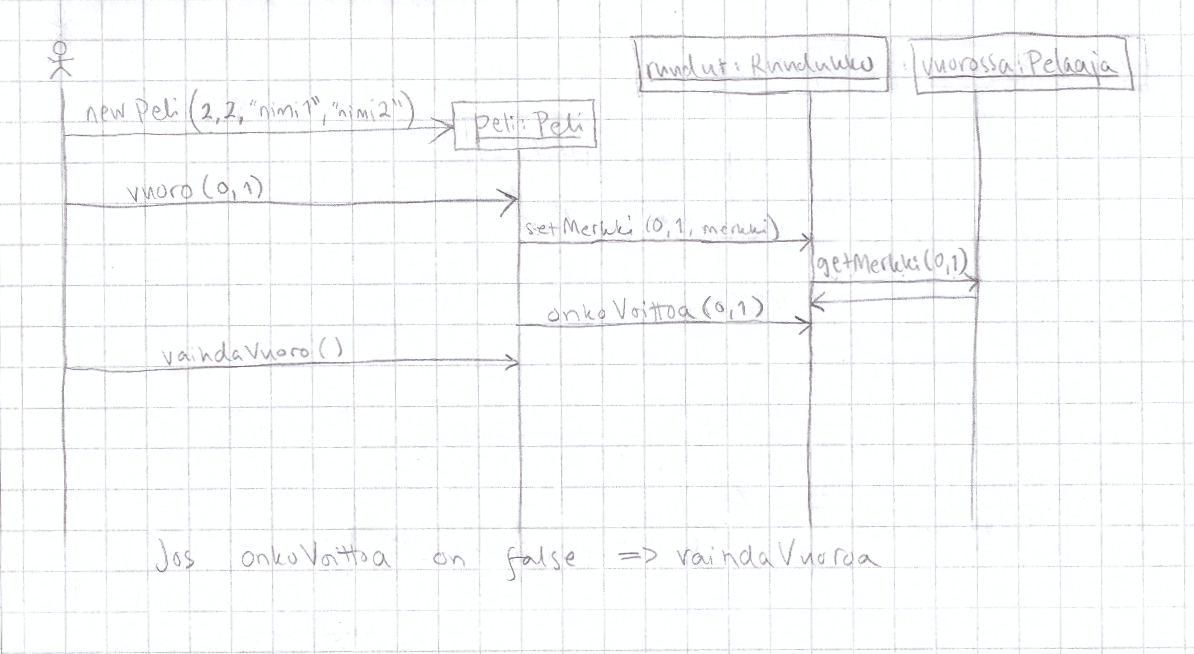 ruudut: Ruudukko
vuorossa: Pelaaja
new Peli (2,2, "nimi1", "nimi2")
peli: Peli
vuoro (0,1)
setMerkki (0, 1, merkki)
getMerkki (0,1)
onko Voittoa (0,1)
vaihdaVuoro ()
Jos onkoVoittoa on false => vaihdaVuoroa